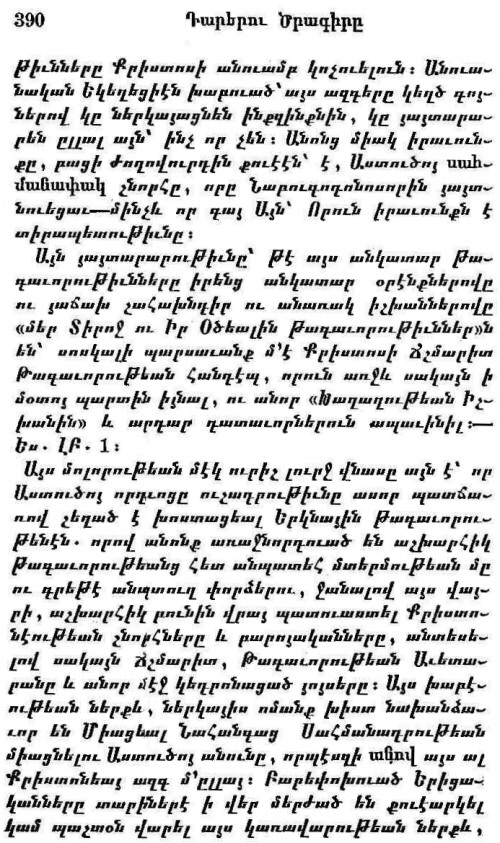 390 Դարերու Ծրագիրը
թիւնները Քրիստոսի անուամբ կոչուելուն: Անուա-
նական Եկեղեցիէն խաբուած՝ այս ազգերը կեղծ գոյ-
ներով կը ներկայացնեն ինքզինքնին, կը յայտարա-
րեն ըլլալ այն՝ ինչ որ չեն: Անոնց միակ իրաւուն-
քը, բացի ժողովուրդին քուէէն՝ է, Աստուծոյ սահ-
մանափակ շնորհը, որը Նաբուգոդոնոսորին յայտ-
նուեցաւ—մինչև որ գայ Այն՝ Որուն իրաւունքն է
տիրապետութիւնը:
Այն յայտարարութիւնը՝ թէ այս անկատար թա-
գաւորութիւնները իրենց անկատար օրէնքներովը
ու յաճախ շահախնդիր ու անառակ իշխաններովը
«մեր Տիրոջ ու Իր Օծեալին թագաւորութիւններ»ն
են՝ սոսկալի պարսաւանք մ՚է Քրիստոսի ճշմարիտ
Թագաւորութեան հանդէպ, որուն առջև սակայն ի
մօտոյ պարտին իյնալ, ու անոր «Խաղաղութեան Իշ-
խանին» և արդար դատաւորներուն ապաւինիլ:—
Ես. ԼԲ. 1:
Այս մոլորութեան մէկ ուրիշ լուրջ վնասը այն է՝ որ
Աստուծոյ որդւոցը ուշադրութիւնը ասոր պատճա-
ռով շեղած է խոստացեալ Երկնային թագաւորու-
թենէն. որով անոնք առաջնորդուած են աշխարհիկ
թագաւորութեանց հետ անպատեհ մտերմութեան մը
ու գրեթէ անպտուղ փորձերու, ջանալով այս վայ-
րի, աշխարհիկ բունին վրայ պատուաստել Քրիստո-
նէութեան շնորհները և բարոյականները, անտեսե-
լով սակայն ճշմարիտ, Թագաւորութեան Աւետա-
րանը և անոր մէջ կեդրոնացած յոյսերը: Այս խաբէ-
ութեան ներքև, ներկայիս ոմանք խիստ նախանձա-
ւոր են Միացեալ Նահանգաց Սահմանադրութեան
միացնելու Աստուծոյ անունը, որպէսզի անով այս ալ
Քրիստոնեայ ազգ մ՚ըլլայ: Բարեփոխուած Երիցա-
կանները տարիներէ ի վեր մերժած են քուէարկել
կամ պաշտօն վարել այս կառավարութեան ներքև,